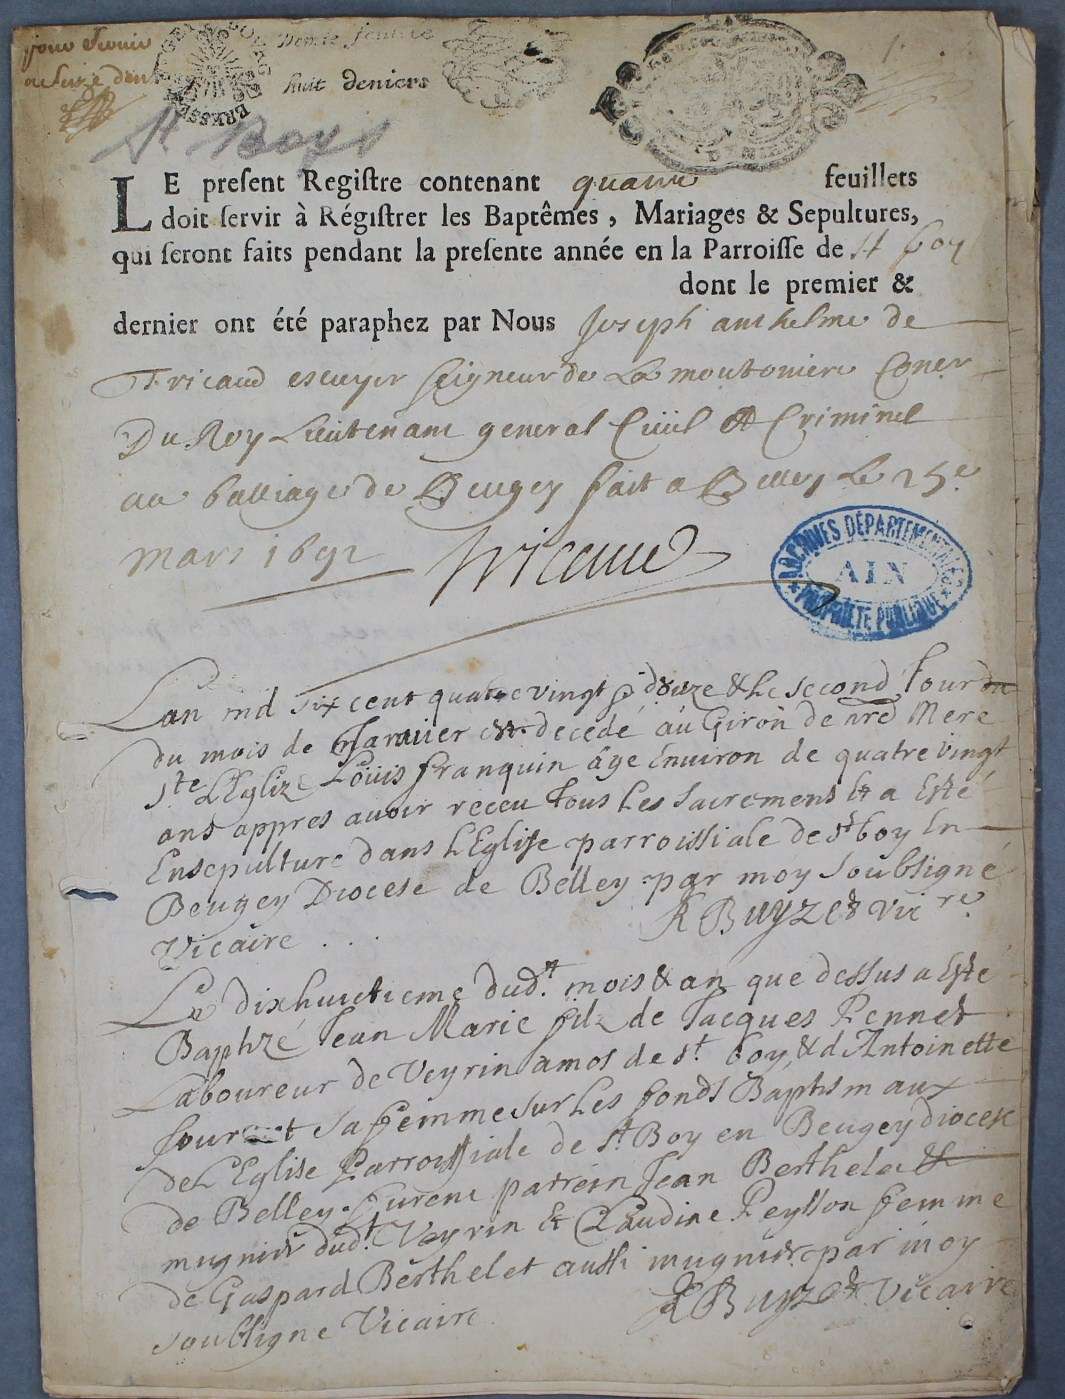 Demie feuille
huit deniers
St. Boys
LE present Registre contenant quatre feuillets
doit servir à Régistrer les Baptêmes, Mariages & Sepultures,
qui seront faits pendant la presente année en la Parroisse de St boy
dont le premier &
dernier ont été paraphez par Nous Joseph anthelme de
Tricaud escuyer seigneur de La moutoniere Coner
Du Roy Lieutenant general Ciuil & Criminel
au balliage de Beugey fait a Belley Le 25e
mars 1692 Tricaud
ARCHIVES DÉPARTEMENTALES
AIN
PROPRIÉTÉ PUBLIQUE
Lan mil six cent quatre vingt & douze & le second Jour
du mois de Januier est decedé au Giron de nre Mere
ste LEglize Loüis franquin âge Enuiron de quatre vingt
ans appres auoir receu tous les sacremens & a Esté
Ensepulturé dans LEglise parroissiale de st boy En
Beugey Diocese de Belley par moy soubsigné
Vicaire . . . R Buyzet vicre
Le dixhuictieme dudt mois & an que dessus a Esté
Baptizé Jean Marie filz de Jacques Pennet
Laboureur de Veyrin amos de st boy, & d'Antoinette
sa femme sur Les fonds Baptismaux
de LEglise Parroissiale de st Boy en Beugey diocese
de Belley. furent parrein Jean Berthelet
mugnier dudt Veyrin Et Claudine Peysson femme
de Gaspard Berthelet aussi mugnier par moy
soubsigne Vicaire R Buyzet Vicaire